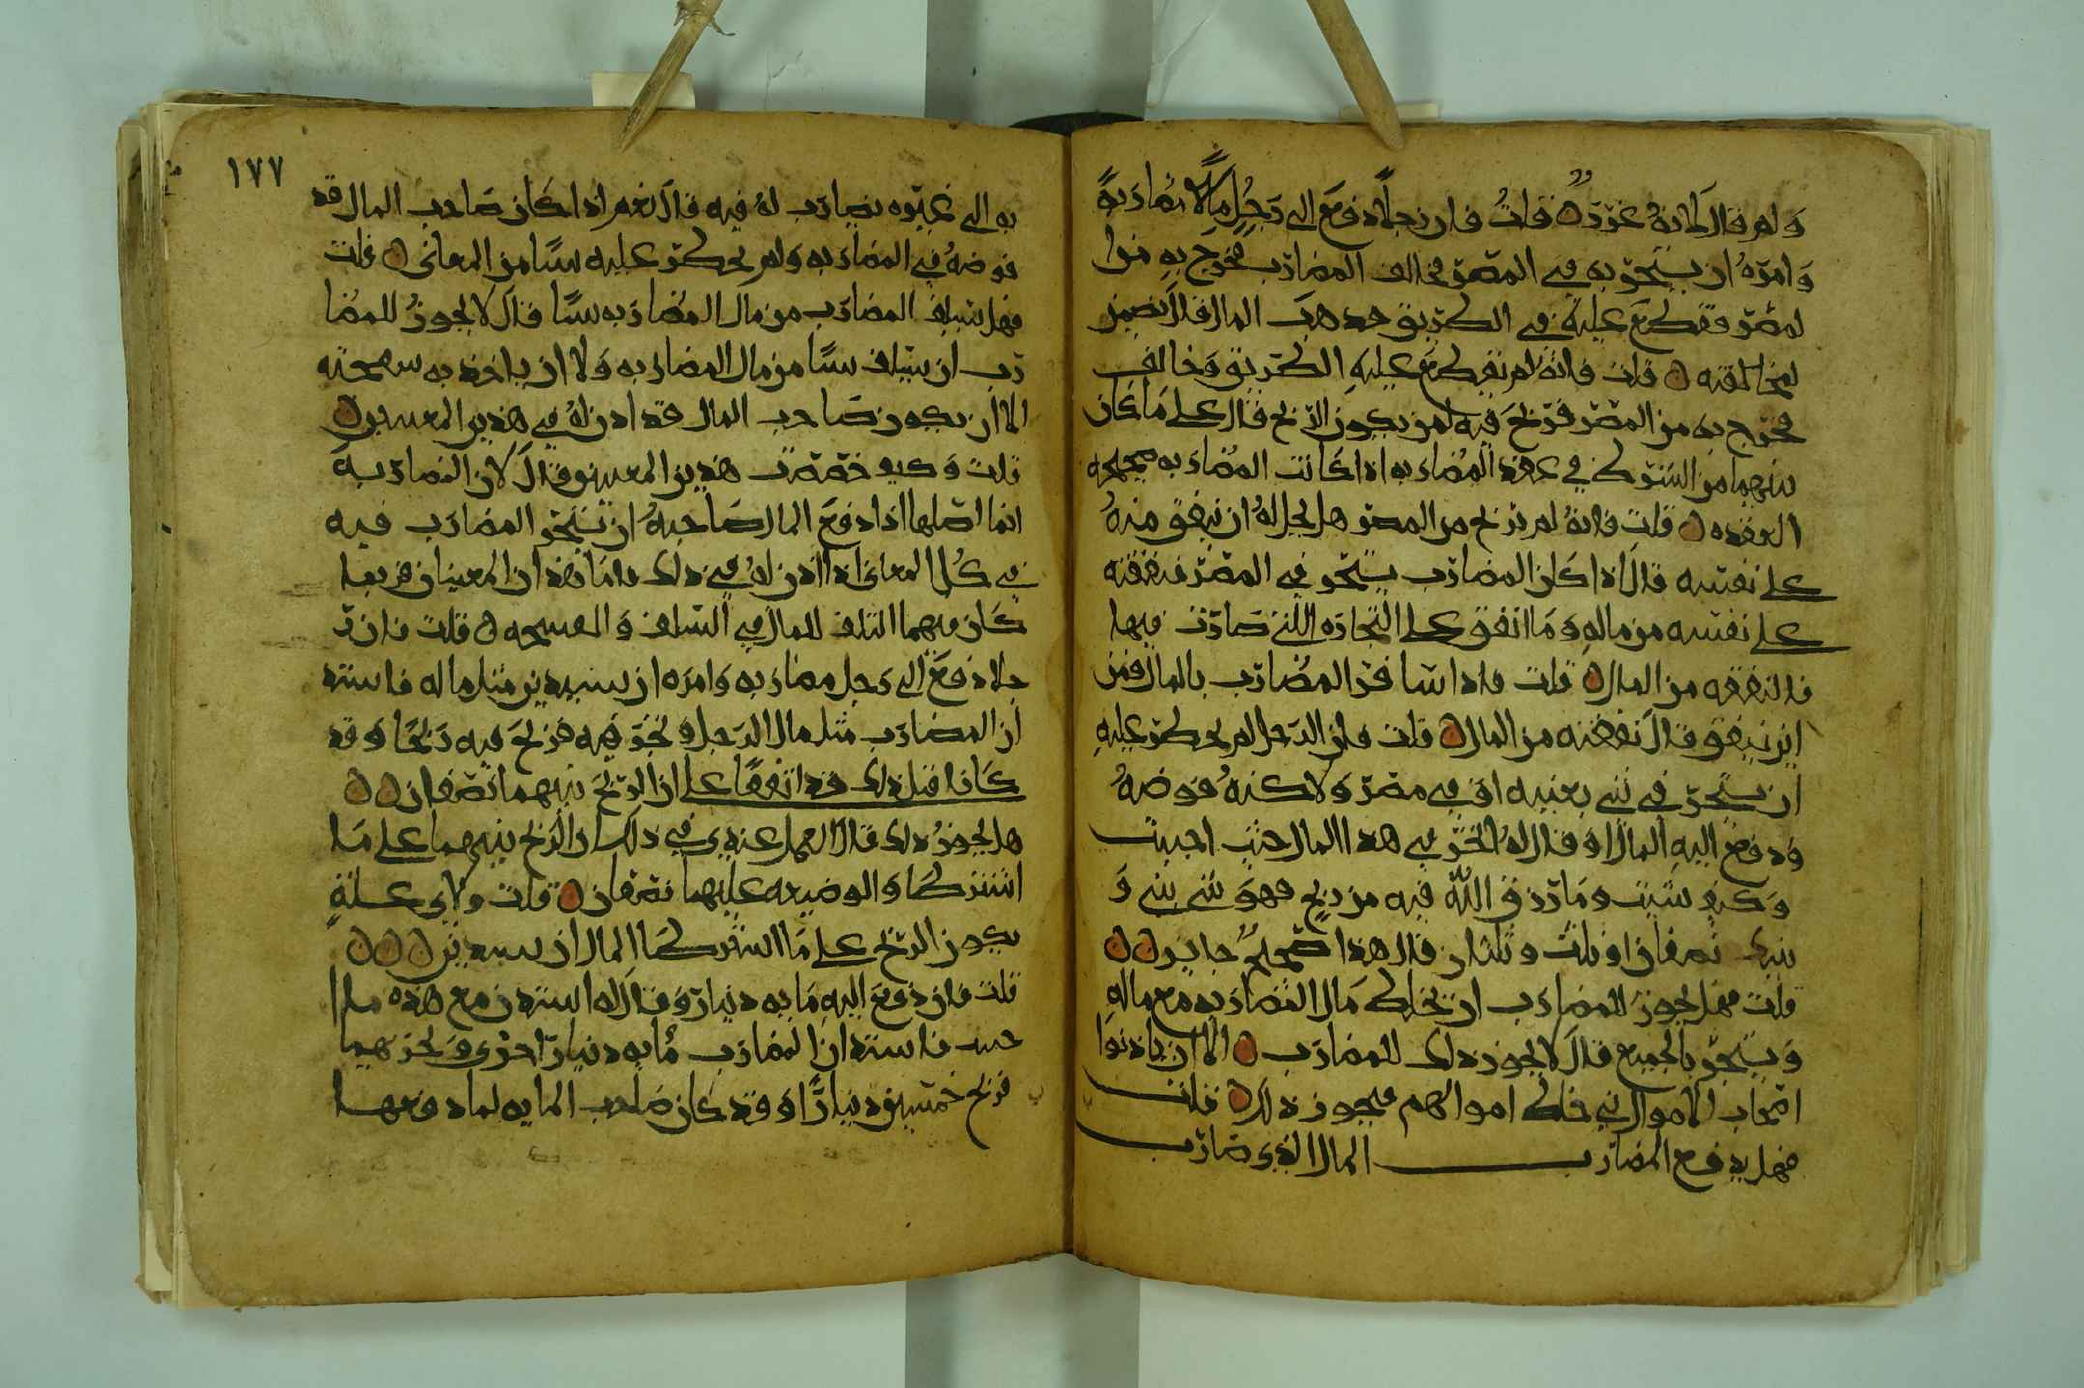 ولم قال لانه غرر قلت فان رجلا دفع الى رجل مالا مضاربة
وامره ان يتجر به في المصر فخالف المضارب فخرج به من
المصر فقطع عليه في الطريق فذهب المال قال يضمن
لمخالفته قلت فانه لم يقطع عليه الطريق وخالف
فخرج به من المصر فربح فيه لمن يكون الربح قال على ما كان
بينهما من الشرط في عقد المضاربه اذا كانت المضاربه صحيحه
العقده قلت فانه لم يخرج من المصر هل يحل له ان ينفق منه
على نفسه قال اذا كان المضارب يتجر في المصر فنفقته
على نفسه من ماله وما انفق على التجاره اللتي ضارب فيها
فالنفقه من المال قلت فاذا سافر المضارب بالمال فمن
اين ينفق قال نفقته من المال قلت فان الرجل لم يحظر عليه
ان يتجر في شي بعينه او في مصر ولاكنه فوضه
ودفع اليه المال وقال له اتجر في هذا المال حيث احببت
وكيف شيت وما رزق الله فيه من ربح فهو بيني و
بينك نصفان او ثلث وثلثان قال هذا صحيح جايز
قلت فهل يجوز للمضارب ان يخلط مال المضاربه مع ماله
ويتجر بالجميع قال لا يجوز ذلك للمضارب الا ان ياذنوا
اصحاب الاموال في خلط اموالهم فيجوز ذلك قلت
فهل يدفع المضارب المال الذي ضارب
١٧٧
به الى غيره يضارب له فيه قال نعم اذا كان صاحب المال قد
فوضه في المضاربه ولم يحظر عليه شيا من المعاني قلت
فهل يسلف المضارب من مال المضاربه شيا قال لا يجوز للمضا
رب ان يسلف شيا من مال المضاربه ولا ان ياخذ به سفتجه
الا ان يكون صاحب المال قد اذن له في هذين المعنيين
قلت وكيف خصصت هذين المعنيين قال لان المضاربه
انما اصلها اذا دفع المال صاحبه ان يتجر المضارب فيه
في كل المعاني اذا اذن له في ذلك فاما هذان المعنيان فربما
كان فيهما التلف للمال في السلف والسفتجه قلت فان ر
جلا دفع الى رجل مضاربه وامره ان يستدين مثل ماله فاستد
ان المضارب مثل مال الرجل وتجر فيه فربح فيه ربحا وقد
كانا قبل ذلك قد اتفقا على ان الربح بينهما نصفان
هل يجوز ذلك قال العمل عندي في ذلك ان الربح بينهما على ما
اشترطا والوضيعه عليهما نصفان قلت ولاي علة
يكون الربح على ما اشترطا المال ان يستدين
قلت فان دفع اليه مايه دينار وقال له استدن مع هذه مالا
فاستدان المضارب مايه دينار اخرى وتجر بهما
فربح خمسين دينارا وقد كان صاحب المايه لما دفعها